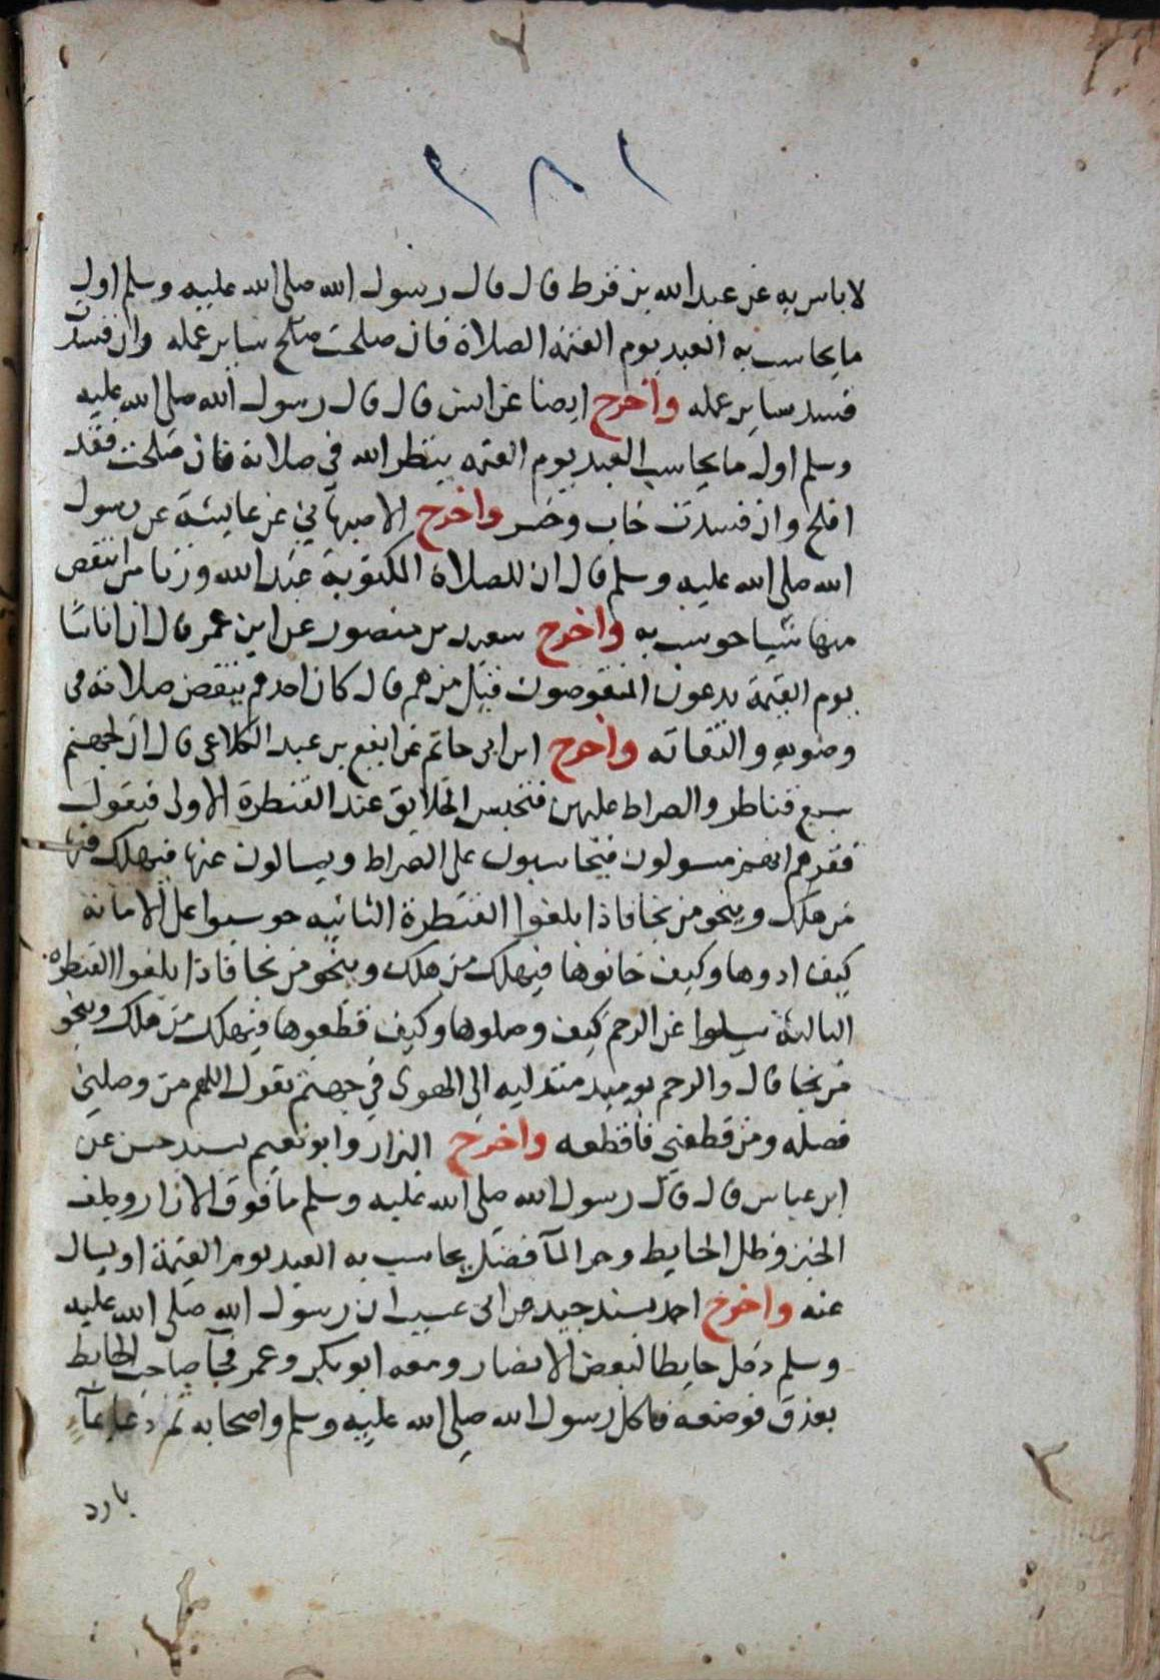 ١٨١
لا باس به عن عبد الله بن قرط قال قال رسول الله صلى الله عليه وسلم اول
ما يحاسب به العبد يوم القيمة الصلاة فان صلحت صلح ساير عمله وان فسدت
فسد ساير عمله واخرج ايضا عن انس قال قال رسول الله صلى الله عليه
وسلم اول ما يحاسب العبد يوم القيمة ينظر الله في صلاته فان صلحت فقد
افلح وان فسدت خاب وخسر واخرج الاصبهاني عن عايشة عن رسول
الله صلى الله عليه وسلم قال ان للصلاة المكتوبة عند الله وزنا من انتقص
منها شيا حوسب به واخرج سعيد بن منصور عن ابن عمر قال ان اناسا
يوم القيمة يدعون المنقوصون قيل من هم قال كان احدهم ينقض صلاته في
وضويه والتفاته واخرج ابن ابي حاتم عن ايفع بن عبد الكلاعي قال ان لجهنم
سبع قناطر والصراط عليهن فتحبس الخلايق عند القنطرة الاولى فيقول
قفوهم انهم مسولون فيحاسبون على الصراط ويسالون عنها فيهلك فيها
من هلك وينجو من نجا فاذا بلغوا القنطرة الثانيه حوسبوا على الامانة
كيف ادوها وكيف خانوها فيهلك من هلك وينجو من نجا فاذا بلغوا القنطرة
الثالثة سيلوا عن الرحم كيف وصلوها وكيف قطعوها فيهلك من هلك وينجو
من نجا قال والرحم يوميد متدليه الى الهوى في جهنم تقول اللهم من وصلني
فصله ومن قطعني فاقطعه واخرج البزار وابو نعيم بسند حسن عن
ابن عباس قال قال رسول الله صلى الله عليه وسلم ما فوق الازار وجلف
الخبز وظل الحايط وجر الما فضل يحاسب به العبد يوم القيمة او يسال
عنه واخرج احمد بسند جيد عن ابي عسيب ان رسول الله صلى الله عليه
وسلم دخل حايطا لبعض الانصار ومعه ابو بكر وعمر فجآ صاحب الحايط
بعذق فوضعه فاكل رسول الله صلى الله عليه وسلم واصحابه ثم دعا بمآ
بارد